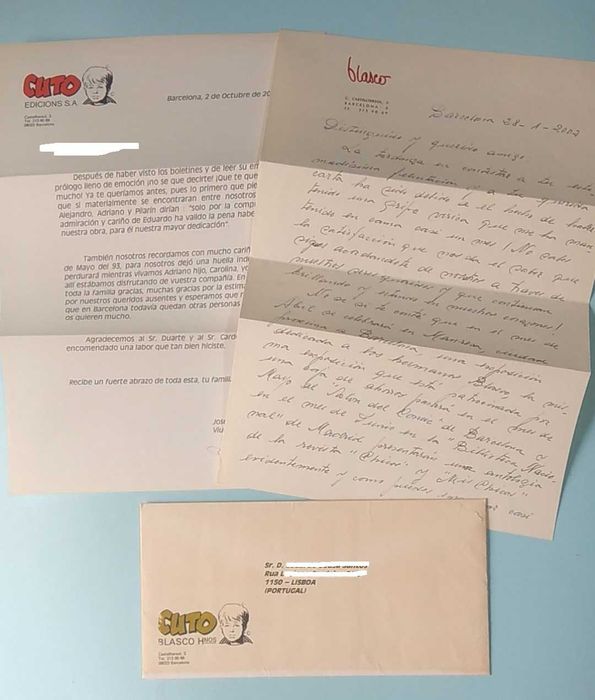 CUTO
EDICIONS S.A
Barcelona, 2 de Octubre de 20
Después de haber visto los boletines y de leer su em
prólogo lleno de emoción ¡no se que decirte! ¡Que te que
mucho! Ya te queríamos antes, pues lo primero que pie
que si materialmente se encontraran entre nosotros
Alejandro, Adriano y Pilarín dirían : "solo por la comp
admiración y cariño de Eduardo ha valido la pena habe
nuestra obra, para él nuestra mayor dedicación".
También nosotros recordamos con mucho cariñ
de Mayo del 93, para nosotros dejó una huella inde
perdurará mientras vivamos Adriano hijo, Carolina, yo
allí estábamos disfrutando de vuestra compañía. En
toda la familia gracias, muchas gracias por la estima
por nuestros queridos ausentes y esperamos que n
que en Barcelona todavía quedan otras personas
os quieren mucho.
Agradecemos al Sr. Duarte y al Sr. Card
encomendado una labor que tan bien hiciste.
Recibe un fuerte abrazo de toda esta, tu famili
José
Viu
blasco
Barcelona 28-1-2002
Distinguido y querido amigo:
La tardanza en contestar a tu
felicitación y a tu
carta ha sido debido a el hecho de haber
tenido una gripe que me ha
tenido en cama casi un mes! No cabe
la satisfacción que nos da el saber que
sigues acordandote de nosotros a traves de
nuestros y que continuan
brillando y en nuestros corazones!
No se si te conté que en el mes de
Abril se celebrará en Manresa, ciudad
proxima a Barcelona, una exposicion
dedicada a los hermanos Blasco, la mis-
ma exposición que está patrocinada por
una caja de ahorros pasará en el mes de
Mayo al "Salón del Comic" de Barcelona y
en el mes de Junio en la "Biblioteca Nacio-
nal" de Madrid presentarán una antología
de la revista "Chicos" y "Mis Chicas"
evidentemente y como puedes casi
Sr. D.
Rua
1150 – LISBOA
(PORTUGAL)
CUTO
BLASCO HNOS